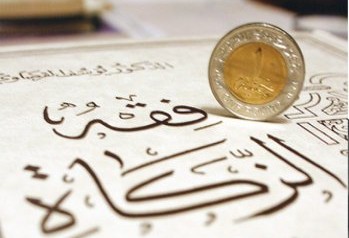 فِقهُ
الزَّكَاة